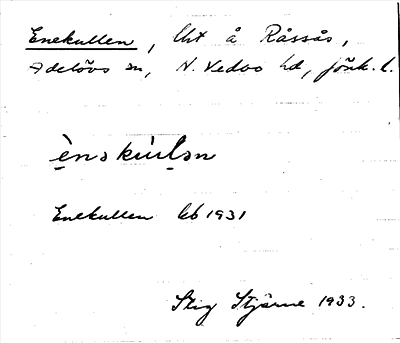 Enekullen, lht å Råssås,
Adelövs sn, N. Vedbo hd, jönk. l.
ènəkúlən
Enekullen lb 1931
Stig Stjärne 1933.